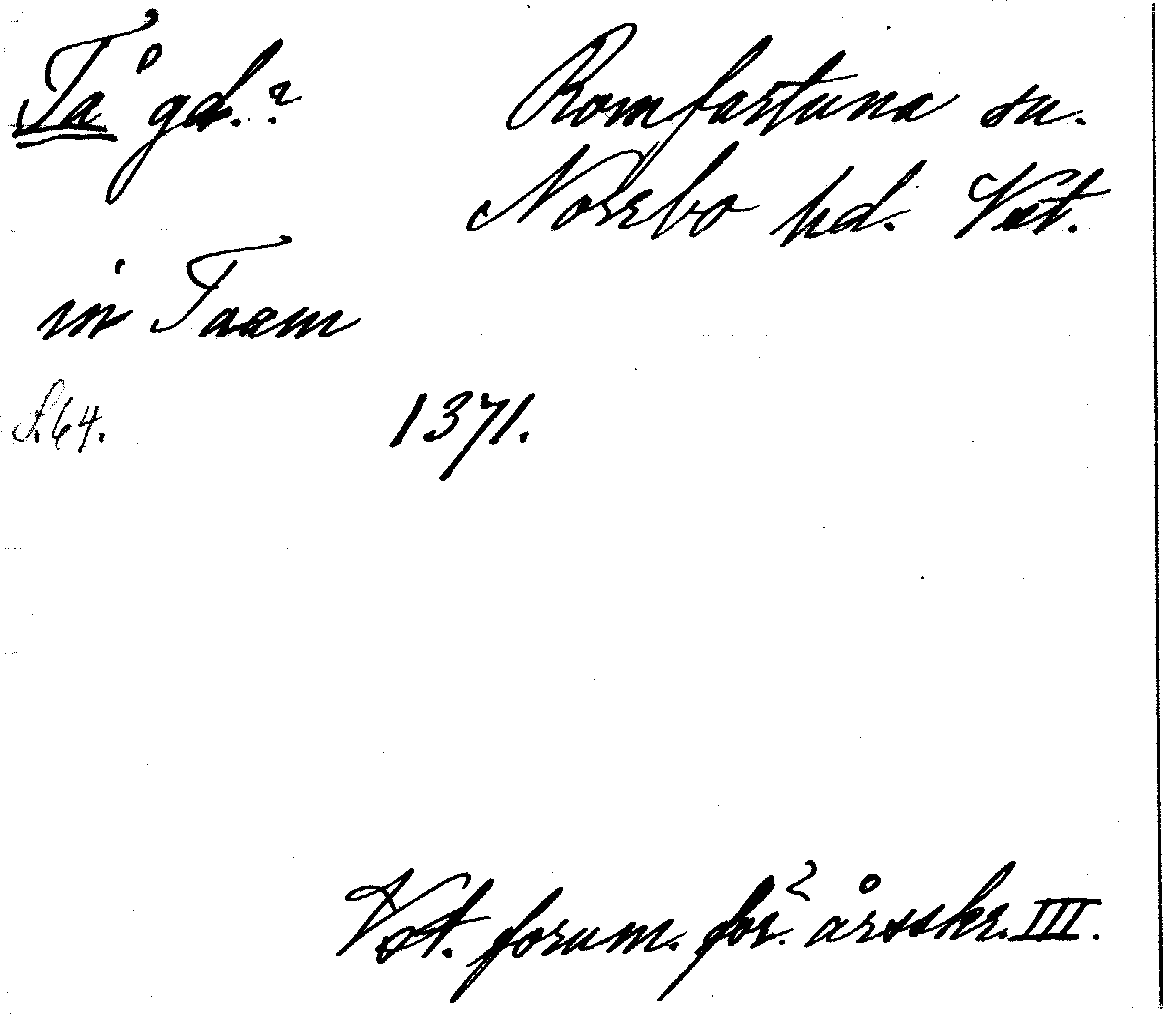 Tå gd.? Romfartuna sn.
Norrbo hd. Vst.
in Taæm
S. 64. 1371.
Vst. fornm. för:s årsskr. III.